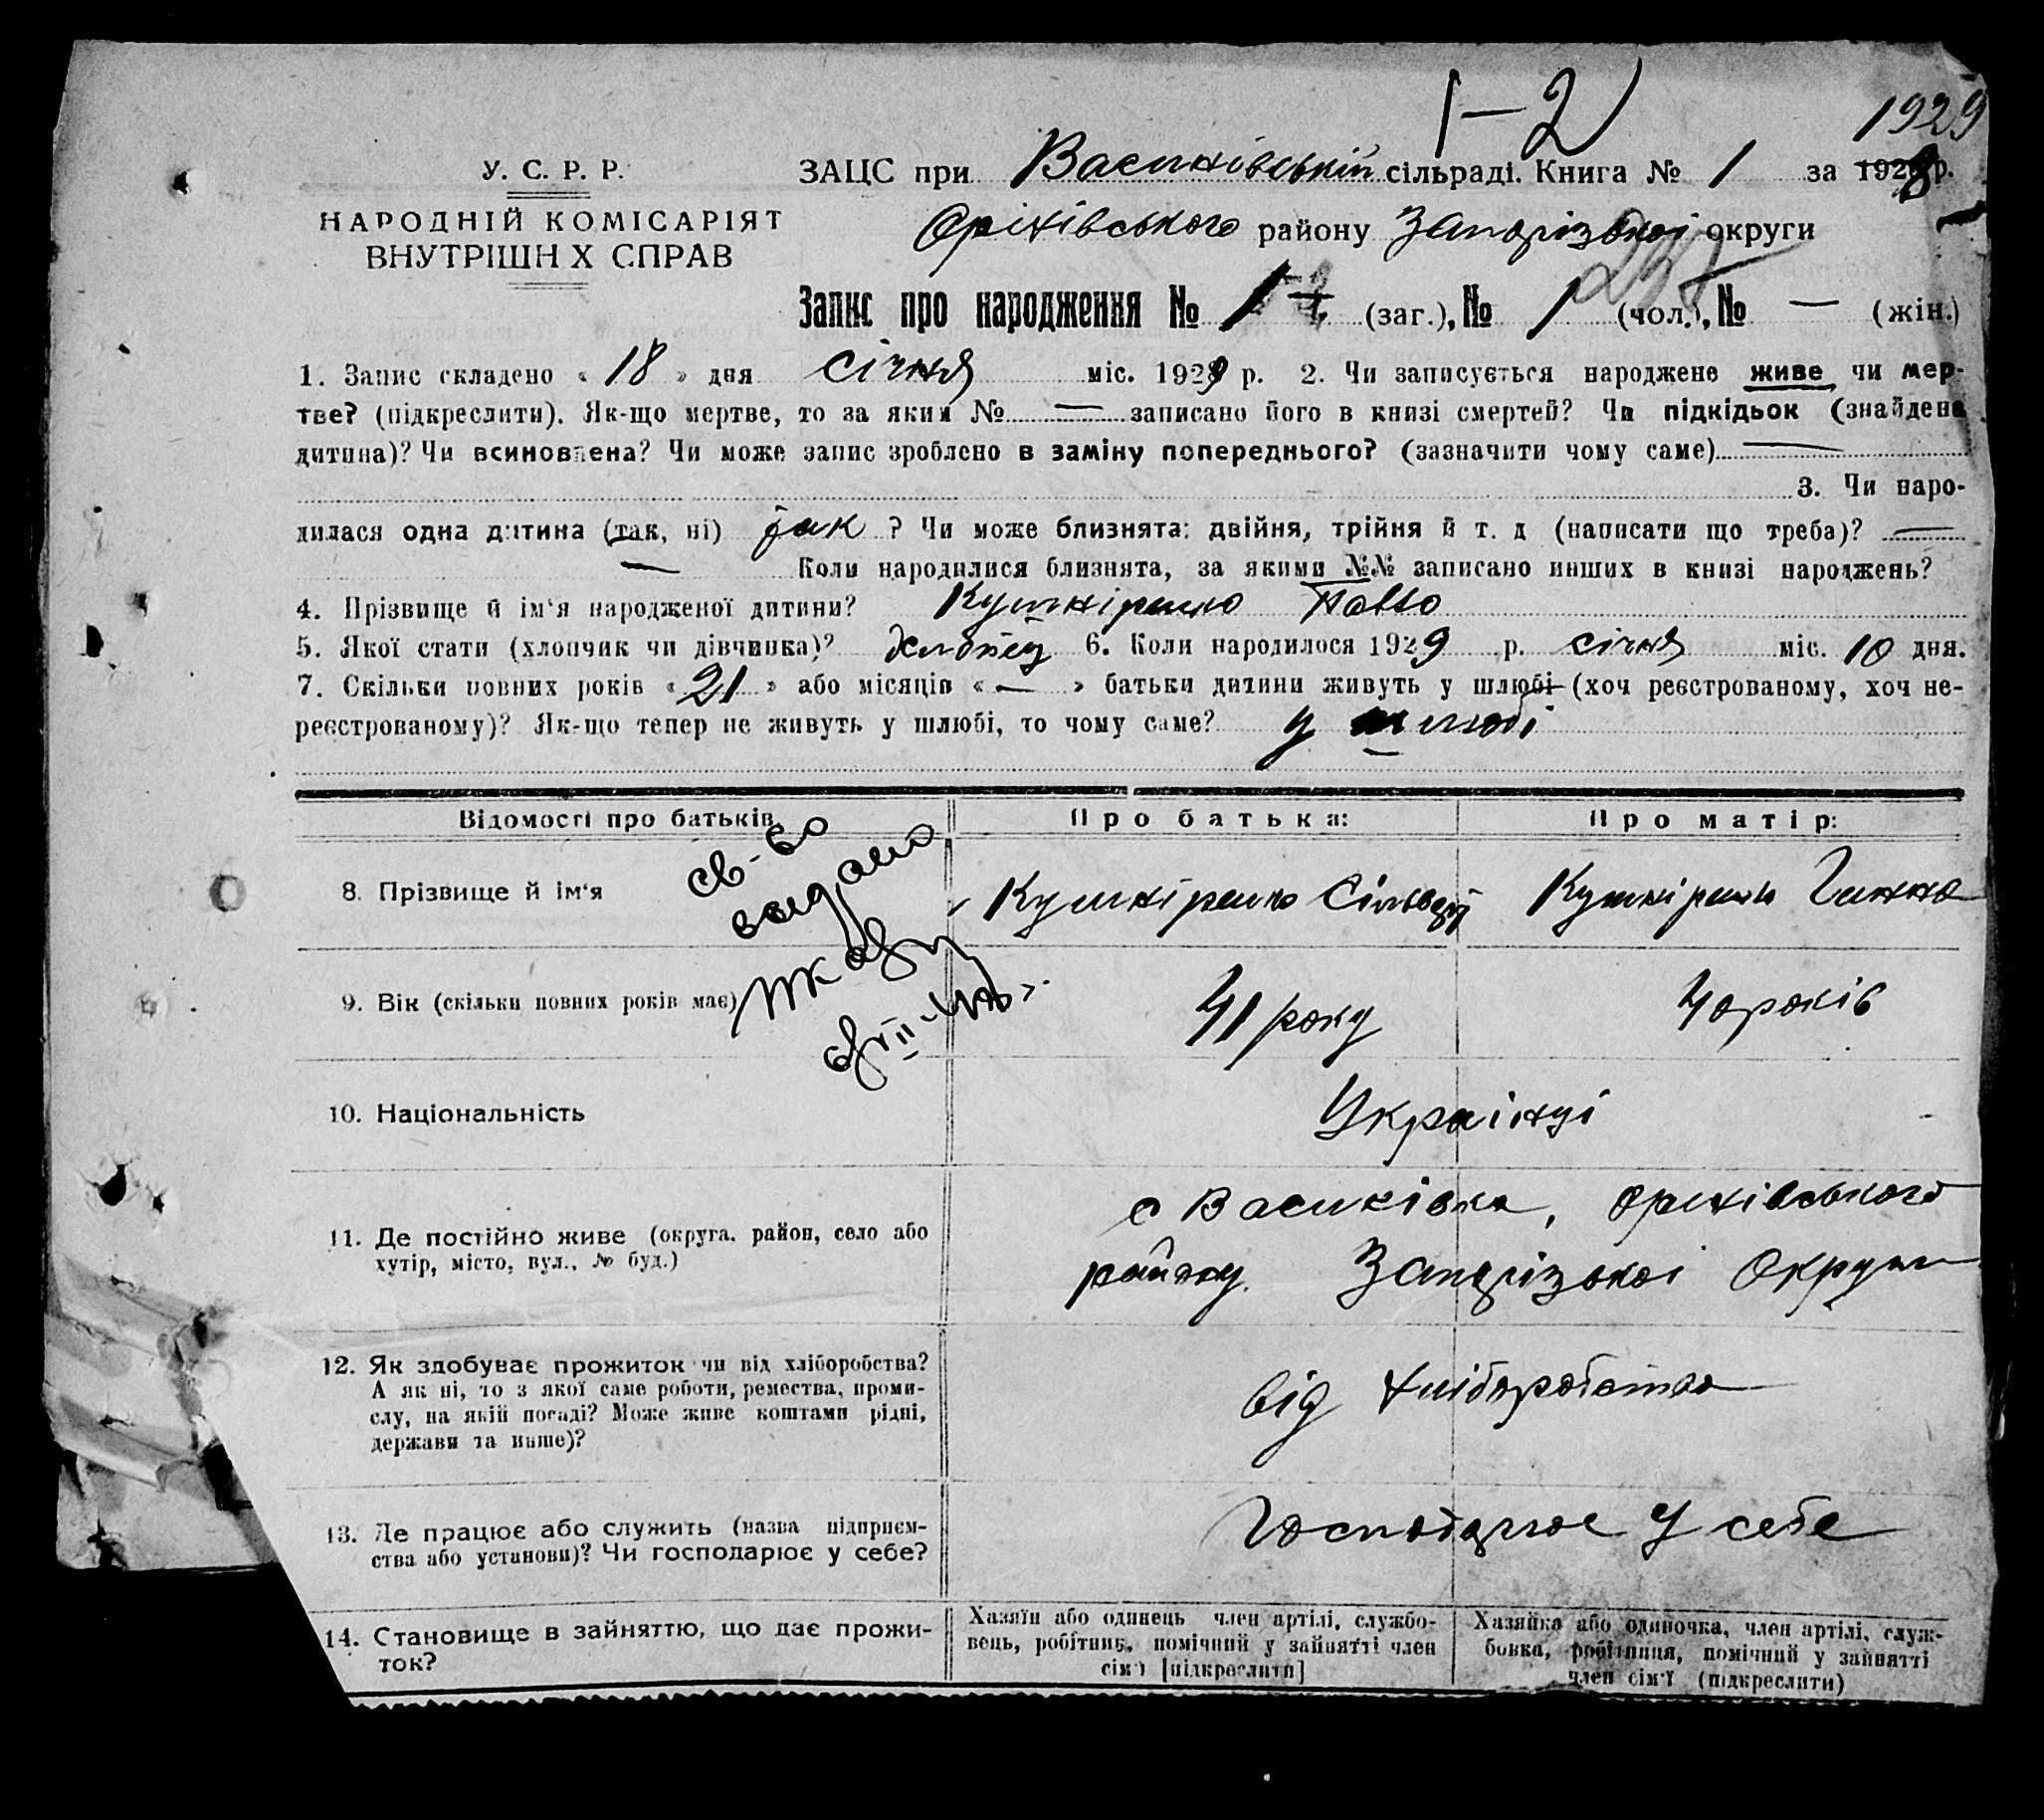 1–2
1929
У. С. Р. Р.
НАРОДНІЙ КОМІСАРІЯТ
ВНУТРІШН Х СПРАВ
ЗАЦС при Василівській сільраді. Книга № 1 за 1928 р.
Оріхівського району Запорізької округи
Запис про народження № 1 (заг.), № 1 (чол.), № — (жін.)
1. Запис складено « 18 » дня січня міс. 1929 р. 2. Чи записується народжене живе чи мер-
тве? (підкреслити). Як-що мертве, то за яким № — записано його в книзі смертей? Чи підкідьок (знайдена
дитина)? Чи всиновлена? Чи може запис зроблено в заміну попереднього? (зазначити чому саме) —
3. Чи наро-
дилася одна дитина (так, ні) так ? Чи може близнята: двійня, трійня й т. д (написати що треба)? —
— Коли народилися близнята, за якими №№ записано инших в книзі народжень?
4. Прізвище й ім‘я народженої дитини? Кушніренко Павло
5. Якої стати (хлопчик чи дівчинка)? хлопец 6. Коли народилося 1929 р. січня міс. 10 дня.
7. Скільки повних років « 21 » або місяців « — » батьки дитини живуть у шлюбі (хоч реєстрованому, хоч не-
реєстрованому)? Як-що тепер не живуть у шлюбі, то чому саме? у шлюбі
Відомості про батьків Про батька: Про матір:
св-во
видано
8. Прізвище й ім‘я Кушніренко Кушніренко Ганна
9. Вік (скільки повних років має) 41 року 40 років
10. Національність Українці
11. Де постійно живе (округа. район, село або
хутір, місто, вул., № буд.)
с Василівка, Оріхівського
району. Запорізької Округи
12. Як здобуває прожиток чи від хліборобства?
А як ні, то з якої саме роботи, ремества, проми-
слу, на якій посаді? Може живе коштами рідні,
держави та инше)?
від хліборобства
13. Де працює або служить (назва підприєм-
ства або установи)? Чи господарює у себе?
Господарює у себе
14. Становище в зайняттю, що дає прожи-
ток?
Хазяїн або одинець член артілі, службо-
вець, робітник, помічний у зайнятті член
сім‘ї [підкреслити]
Хазяйка або одиночка, член артілі, служ-
бовка, робітниця, помічний у зайнятті
член сім‘ї (підкреслити)